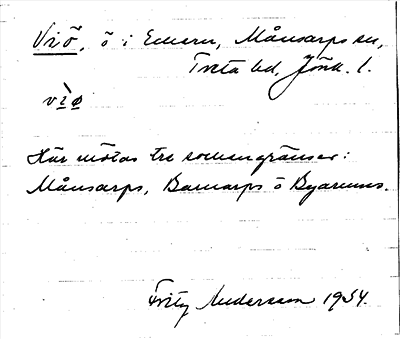 Viö, ö i Emern, Månsarps sn,
Tveta hd, Jönk. l.
vìø
Här mötas tre sockengränser:
Månsarps, Barnarps o Byarums.
Fritz Andersson 1934.